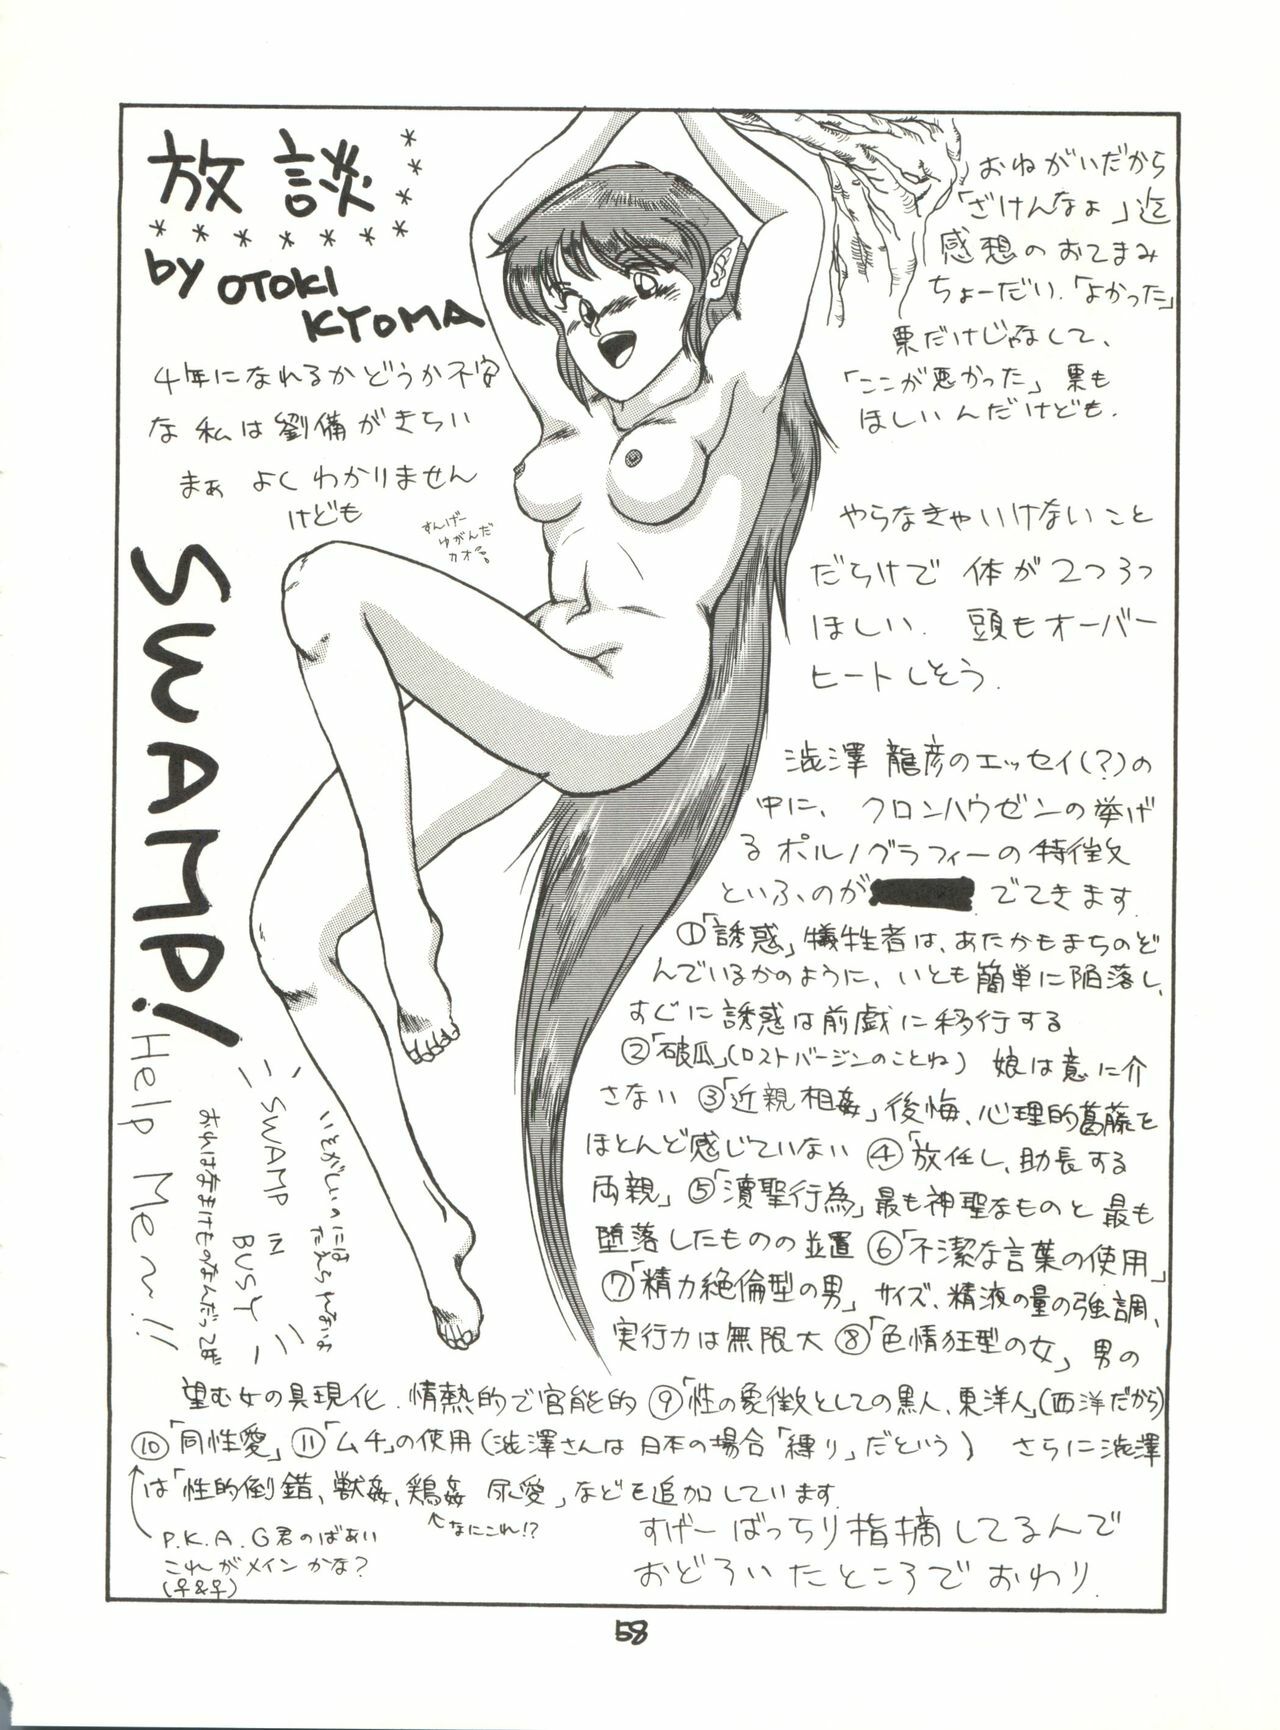 放談
by OTOKI
KYOMA
4年になれるかどうか不安
な私は劉備がきらい
まぁ よくわかりません
けども
すんげー
ゆがんだ
カオ
おねがいだから
「ざけんなよ」迄
感想のおてまみ
ちょーだい.「よかった」
票だけじゃなして、
「ここが悪かった」票も
ほしいんだけども.
やらなきゃいけないこと
だらけで 体が2つ3つ
ほしい. 頭もオーバー
ヒートしそう.
SWAMP!
Help Me〜!!
SWAMP IN BUSY
いそがしいのには
たえられないよ
おれはなまけものなんだってば
澁澤 龍彦のエッセイ(?)の
中に、クロンハウゼンの挙げ
るポルノグラフィーの特徴
といふのが でてきます.
①「誘惑」犠牲者は、あたかもまちのぞ
んでいるかのように、いとも簡単に陥落し、
すぐに誘惑は前戯に移行する
②「破瓜」(ロストバージンのことね) 娘は意に介
さない ③「近親相姦」後悔、心理的葛藤を
ほとんど感じていない ④「放任し、助長する
両親」 ⑤「瀆聖行為」最も神聖なものと最も
堕落したものの並置 ⑥「不潔な言葉の使用」
⑦「精力絶倫型の男」 サイズ、精液の量の強調、
実行力は無限大 ⑧「色情狂型の女」男の
望む女の具現化. 情熱的で官能的 ⑨「性の象徴としての黒人、東洋人」(西洋だから)
⑩「同性愛」⑪「ムチ」の使用(澁澤さんは日本の場合「縛り」だという) さらに澁澤
は「性的倒錯、獣姦、鶏姦 尿愛」などを追加しています.
なにこれ!?
P.K.A.G君のばあい
これがメインかな?
(♀&♀)
すげーばっちり指摘してるんで
おどろいたところでおわり.
58